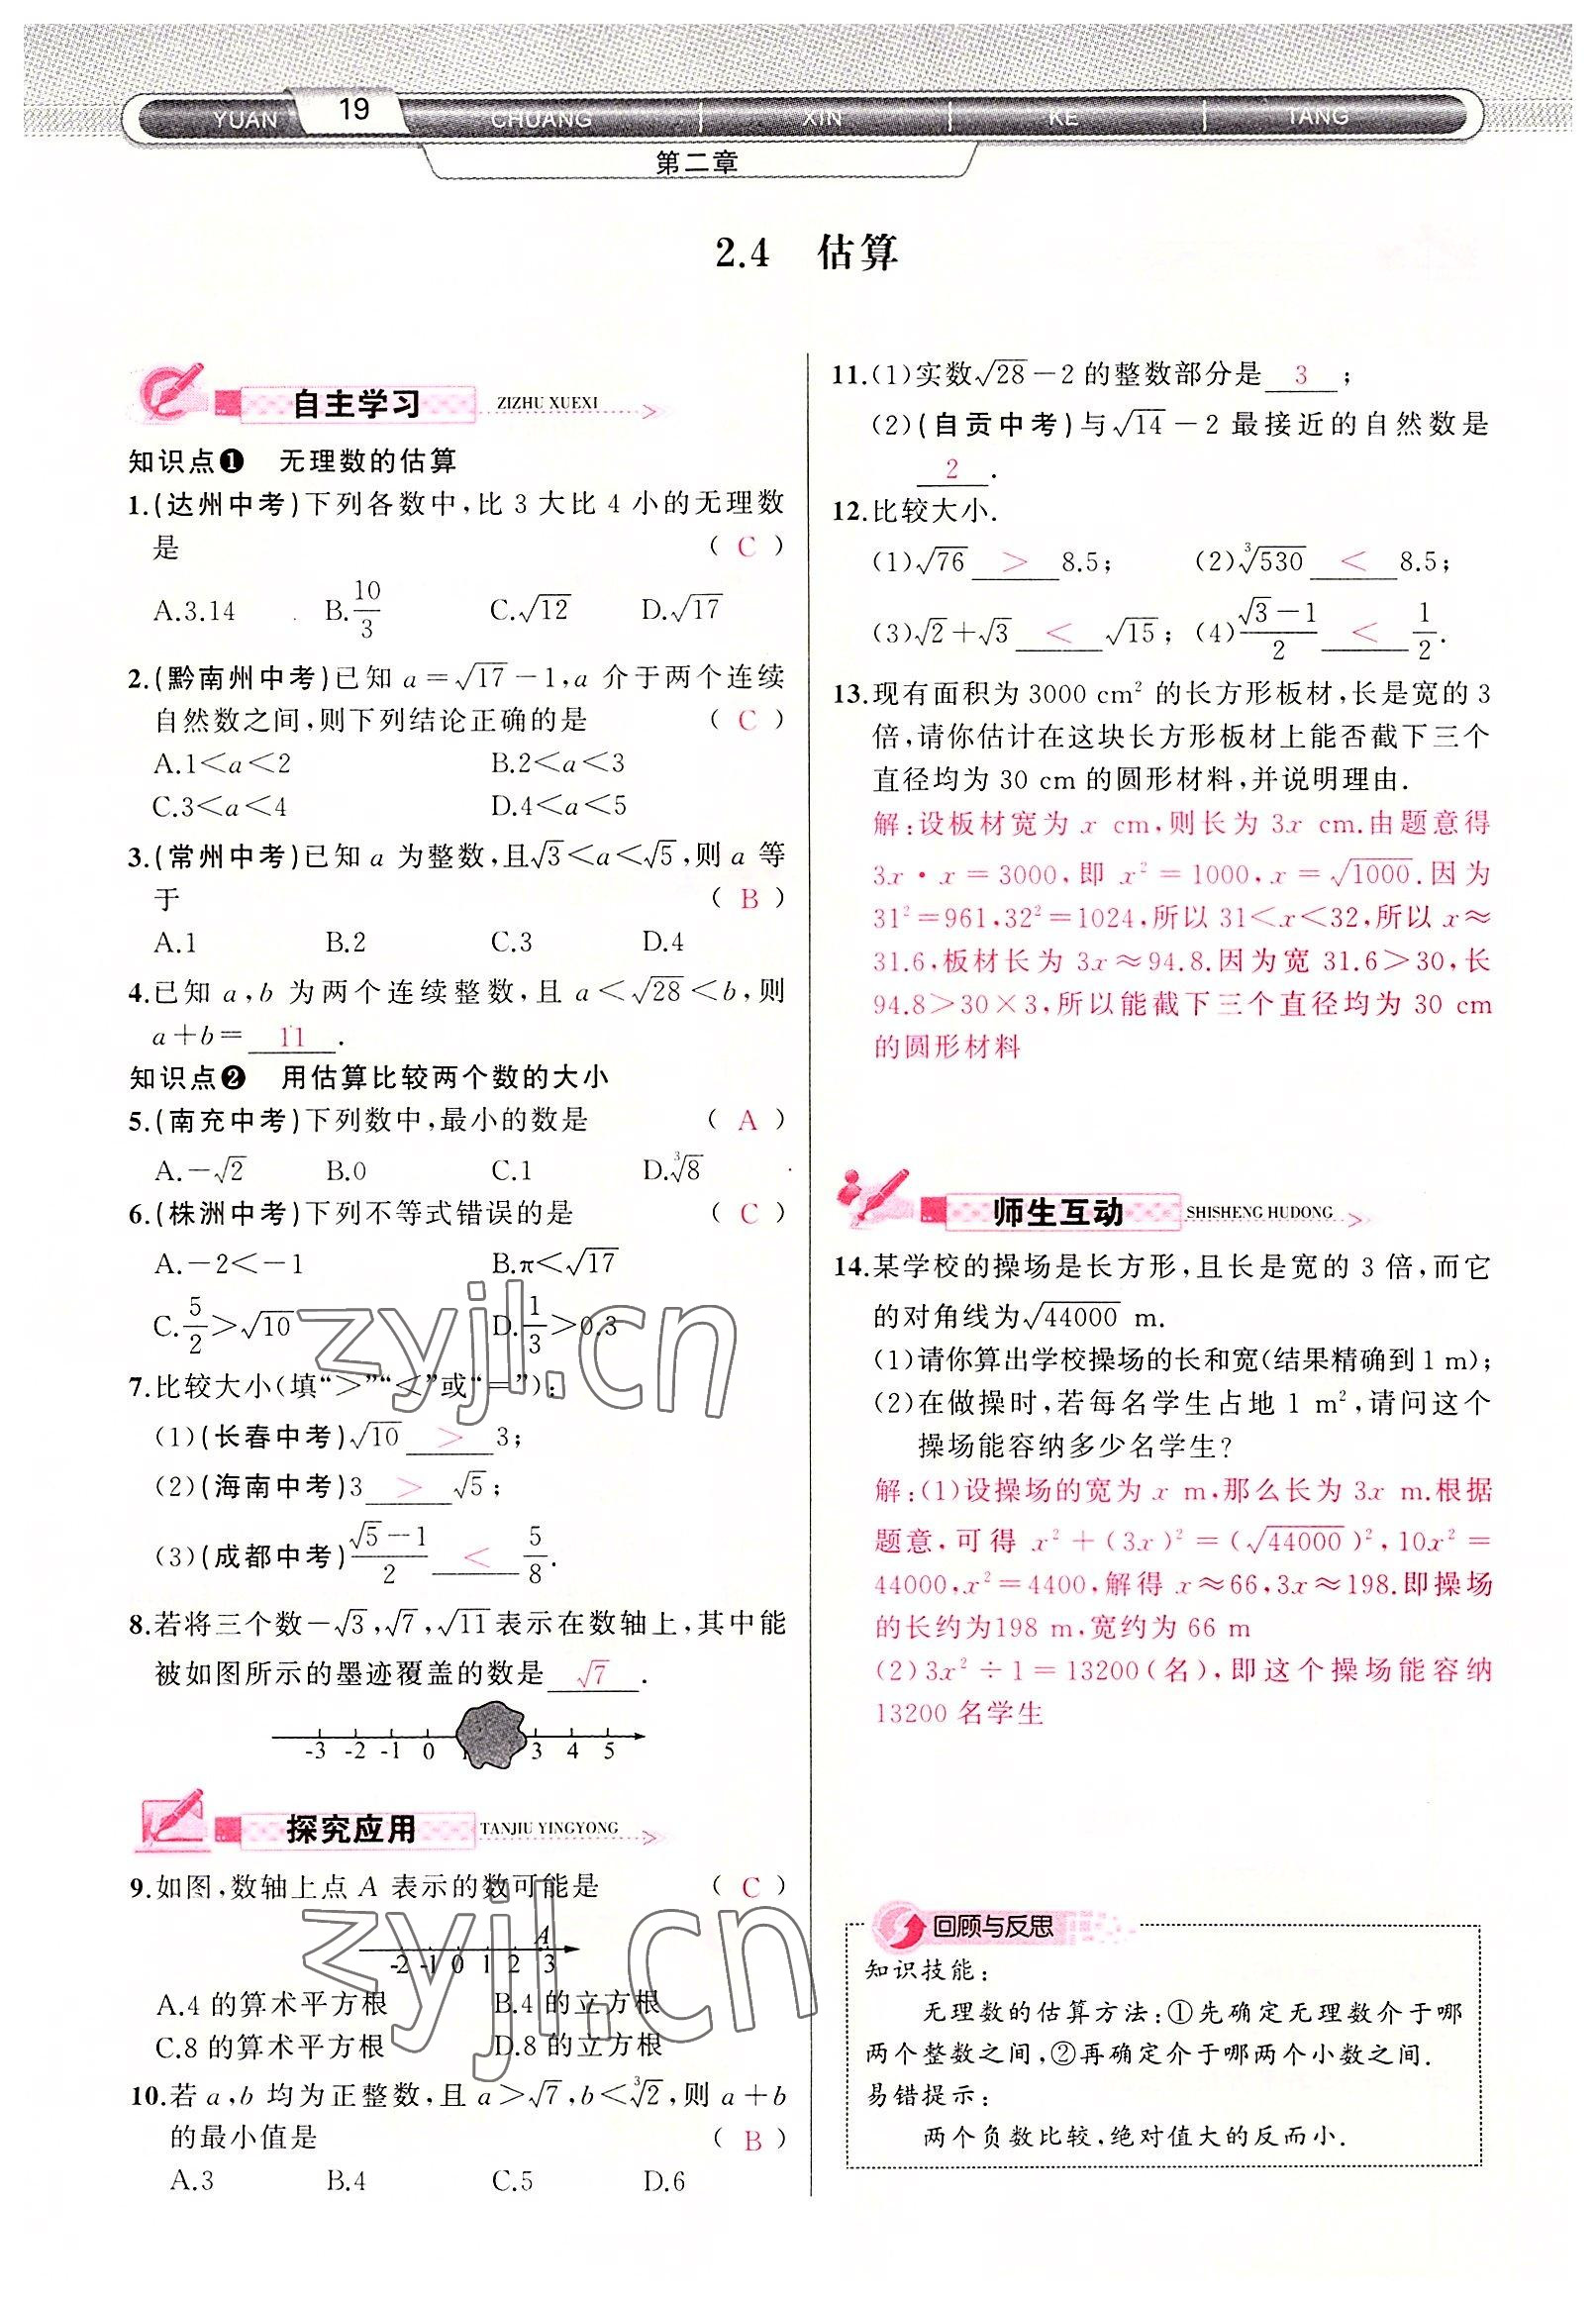 YUAN 19 CHUANG XIN KE TANG
第二章
2.4 估算
自主学习 ZIZHU XUEXI
知识点❶ 无理数的估算
1.(达州中考)下列各数中,比 3 大比 4 小的无理数
是 ( C )
A.3.14 B.10/3 C.√12 D.√17
2.(黔南州中考)已知 a=√17-1,a 介于两个连续
自然数之间,则下列结论正确的是 ( C )
A.1<a<2 B.2<a<3
C.3<a<4 D.4<a<5
3.(常州中考)已知 a 为整数,且√3<a<√5,则 a 等
于 ( B )
A.1 B.2 C.3 D.4
4.已知 a,b 为两个连续整数,且 a<√28<b,则
a+b= 11 .
知识点❷ 用估算比较两个数的大小
5.(南充中考)下列数中,最小的数是 ( A )
A.-√2 B.0 C.1 D.³√8
6.(株洲中考)下列不等式错误的是 ( C )
A.-2<-1 B.π<√17
C.5/2>√10 D.1/3>0.3
7.比较大小(填“>”“<”或“=”):
(1)(长春中考)√10 > 3;
(2)(海南中考)3 > √5;
(3)(成都中考)(√5-1)/2 < 5/8.
8.若将三个数-√3,√7,√11表示在数轴上,其中能
被如图所示的墨迹覆盖的数是 √7 .
-3 -2 -1 0 1 3 4 5
探究应用 TANJIU YINGYONG
9.如图,数轴上点 A 表示的数可能是 ( C )
A
-2 -1 0 1 2 3
A.4 的算术平方根 B.4 的立方根
C.8 的算术平方根 D.8 的立方根
10.若 a,b 均为正整数,且 a>√7,b<³√2,则 a+b
的最小值是 ( B )
A.3 B.4 C.5 D.6
11.(1)实数√28-2 的整数部分是 3 ;
(2)(自贡中考)与√14-2 最接近的自然数是
2 .
12.比较大小.
(1)√76 > 8.5; (2)³√530 < 8.5;
(3)√2+√3 < √15; (4)(√3-1)/2 < 1/2.
13.现有面积为 3000 cm² 的长方形板材,长是宽的 3
倍,请你估计在这块长方形板材上能否截下三个
直径均为 30 cm 的圆形材料,并说明理由.
解:设板材宽为 x cm,则长为 3x cm.由题意得
3x·x=3000,即 x²=1000,x=√1000.因为
31²=961,32²=1024,所以 31<x<32,所以 x≈
31.6,板材长为 3x≈94.8.因为宽 31.6>30,长
94.8>30×3,所以能截下三个直径均为 30 cm
的圆形材料
师生互动 SHISHENG HUDONG
14.某学校的操场是长方形,且长是宽的 3 倍,而它
的对角线为√44000 m.
(1)请你算出学校操场的长和宽(结果精确到 1 m);
(2)在做操时,若每名学生占地 1 m²,请问这个
操场能容纳多少名学生?
解:(1)设操场的宽为 x m,那么长为 3x m.根据
题意,可得 x²+(3x)²=(√44000)²,10x²=
44000,x²=4400,解得 x≈66,3x≈198.即操场
的长约为198 m,宽约为 66 m
(2)3x²÷1=13200(名),即这个操场能容纳
13200 名学生
回顾与反思
知识技能:
无理数的估算方法:①先确定无理数介于哪
两个整数之间,②再确定介于哪两个小数之间.
易错提示:
两个负数比较,绝对值大的反而小.
zyjl.cn
zyjl.cn